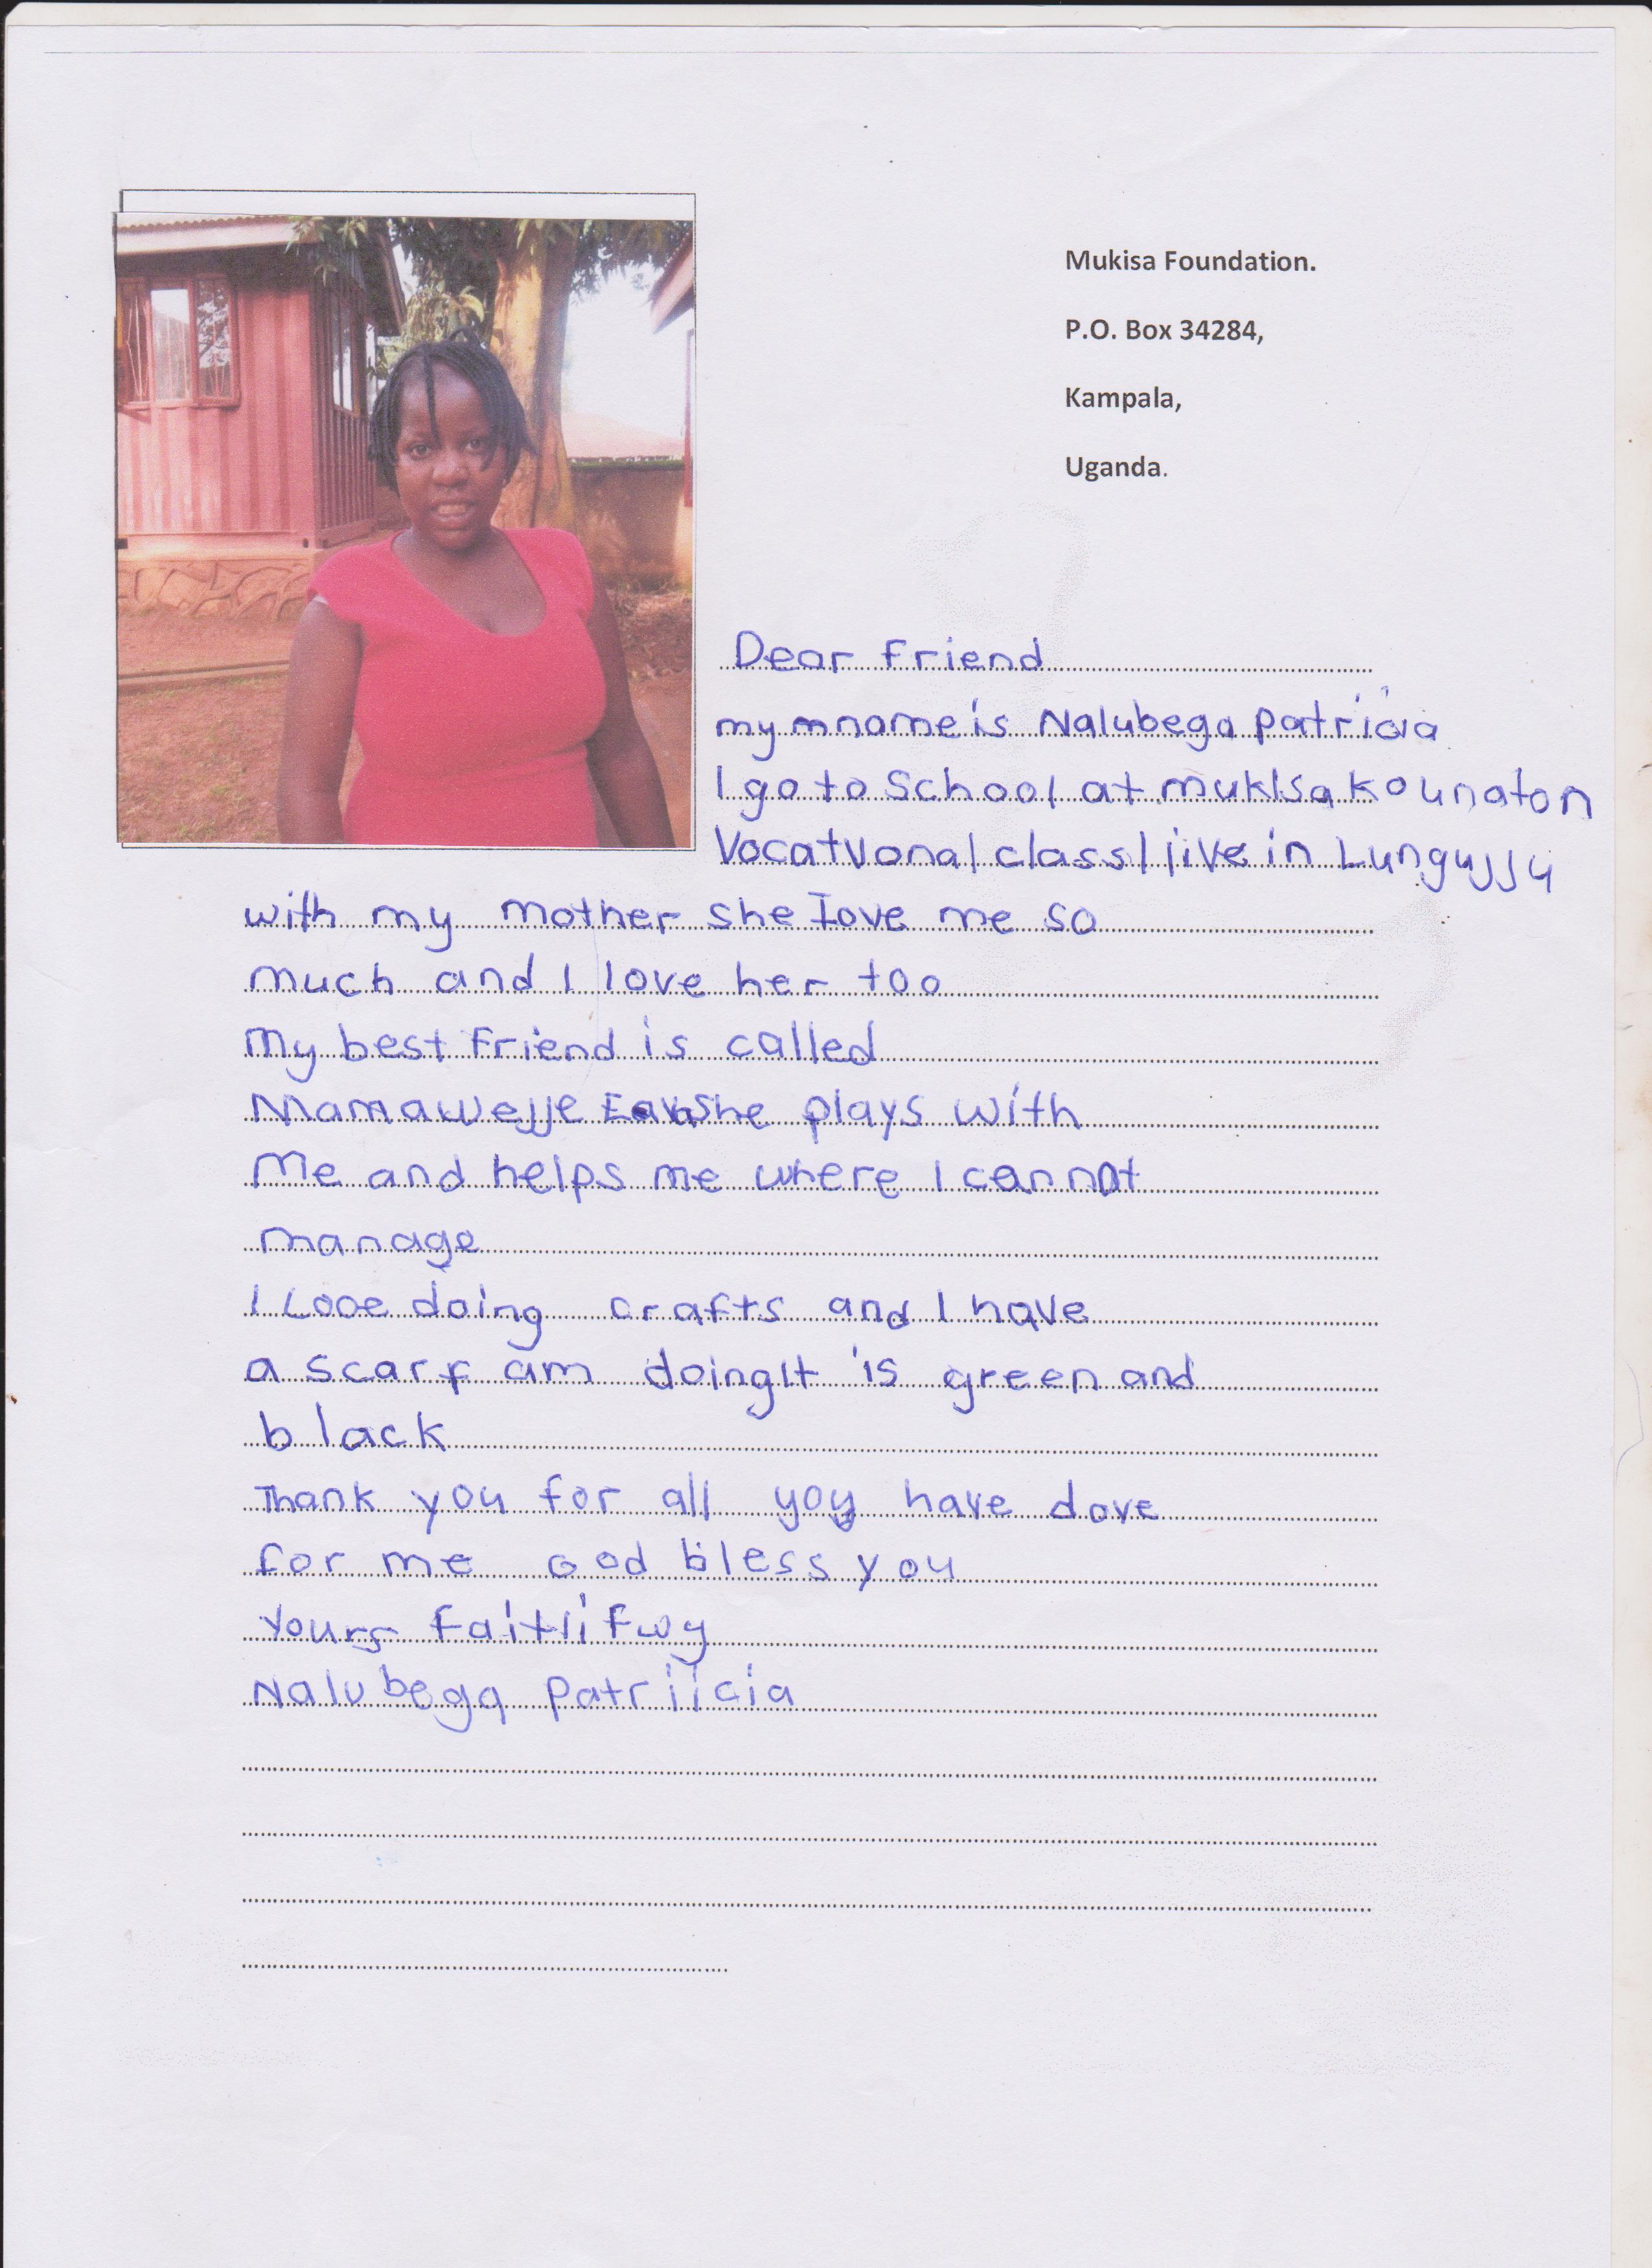 Mukisa Foundation.
P.O. Box 34284,
Kampala,
Uganda.
Dear friend
my mname is Nalubega patricia
I go to School at mukisa kounaton
Vocatvonal class I live in Lungujjy
with my mother she Iove me so
much and I love her too
my best Friend is called
Mamawejje she plays with
Me and helps me where I cannot
manage
I Looe doing crafts and I have
a scarf am doingIt is green and
black
Thank you for all yoy have dove
for me God bless you
Yours faitlifwy
Nalubega patriicia